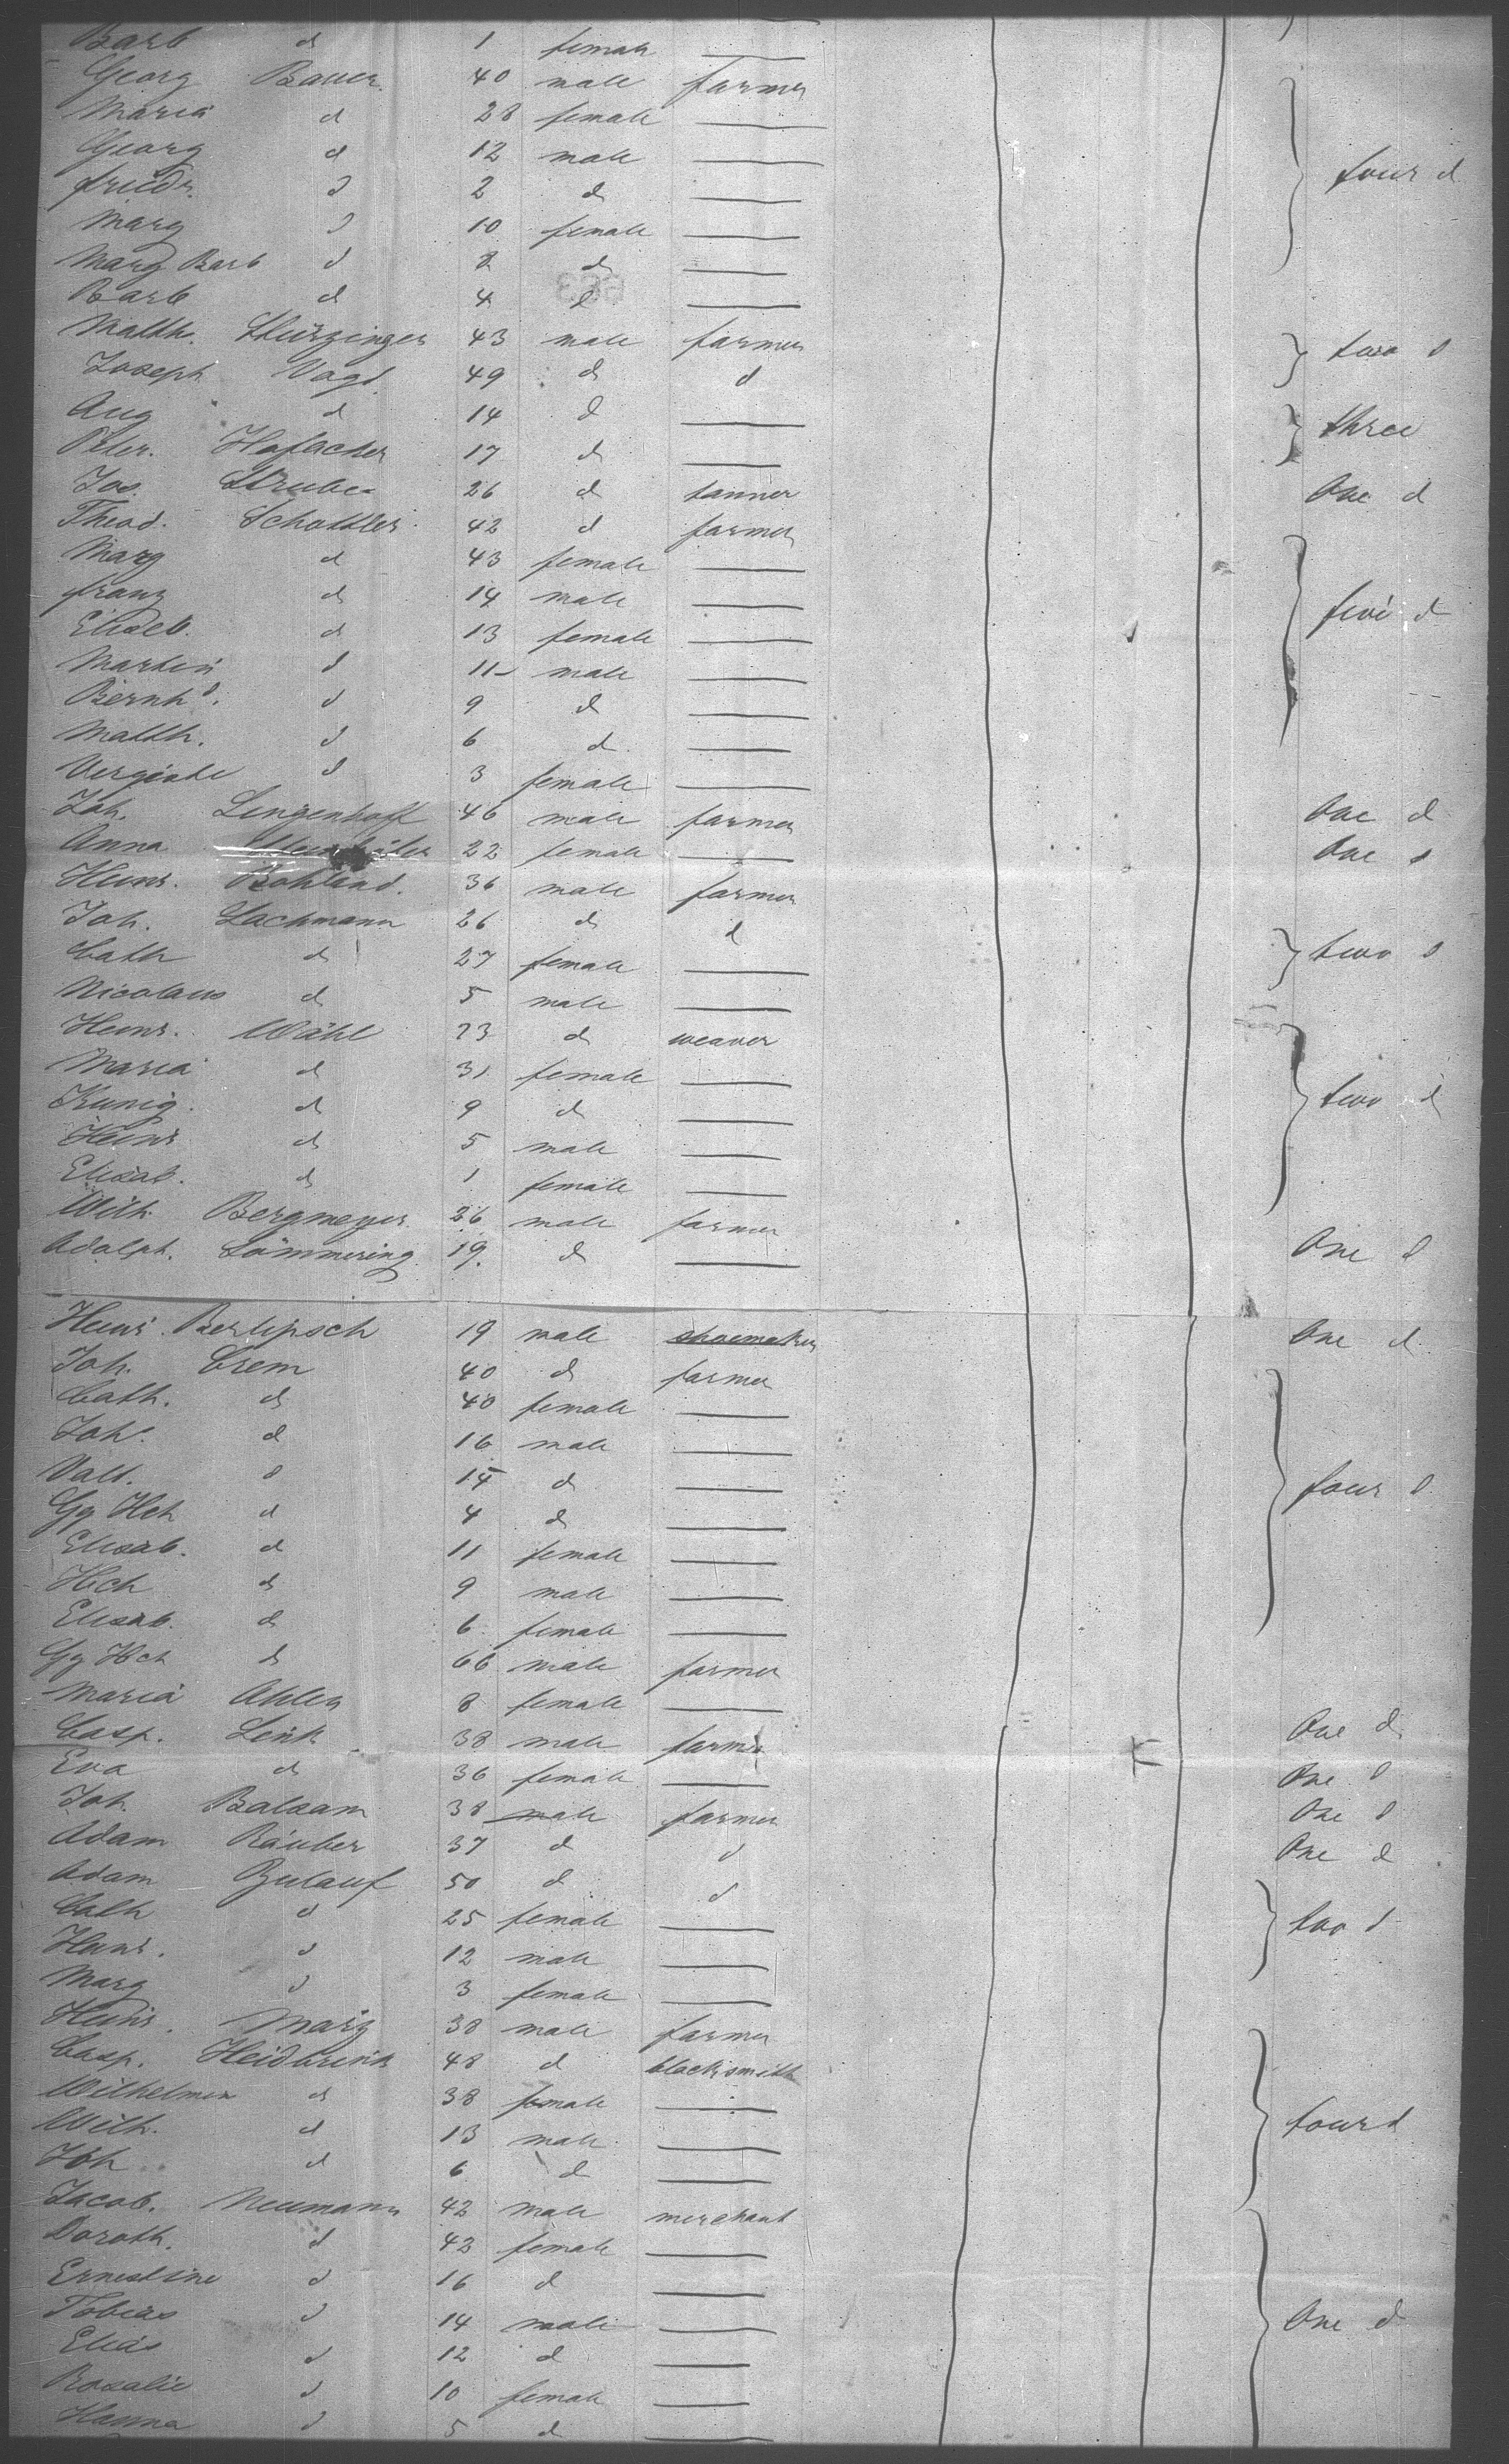 Barb d 1 female
Georg Bauer 40 male farmer
Maria d 28 female
Georg d 12 male four d
Friedr. d 2 d
Marg d 10 female
Marg Barb d 8 d
Barb d 4 d
Matth. 43 male farmer two d
Joseph Vogt 49 d d
Aug d 14 d three
Peter. Hofacker 17 d
Jos. Strube 26 d tanner One d
Theod. Schattler 42 d farmer
Marg d 43 female
franz d 14 male five d
Elisab. d 13 female
Martin d 11 male
Bernhd. d 9 d
Matth. d 6 d
d 3 female
Joh. Lingenhoff 46 male farmer One d
Anna 22 female One d
Heinr. Bohland. 36 male farmer
Joh. Lachmann 26 d d
Cath d 27 female two d
Nicolaus d 5 male
Heinr. Wähl 23 d weaver
Maria d 31 female
Kunig. d 9 d two d
Heinr d 5 male
Elisab. d 1 female
Wilh. Bergmeyer 26 male farmer
Adolph. Sömmering 19. d One d
Heinr. Berlipsch 19 male shoemaker One d
Joh. Crem 40 d farmer
Cath. d 40 female
Joh. d 16 male
Valt. d 14 d four d
Gg Hch d 4 d
Elisab. d 11 female
Hch d 9 male
Elisab. d 6 female
Gg Hch d 66 male farmer
Maria Ahles 8 female
Casp. Link 38 male farmer One d
Eva d 36 female One d
Joh. Balsam 38 male farmer One d
Adam Räuber 37 d d One d
Adam Zulauf 50 d d
Cath d 25 female two d
Heinr. d 12 male
Marg d 3 female
Heinr. Marz 38 male farmer
Casp. Heidbrink 48 d blacksmith
Wilhelmin d 38 female
Wilh. d 13 male four d
Joh d 6 d
Jacob. Neumann 42 male merchant
Doroth. d 42 female
Ernestine d 16 d
Tobias d 14 male One d
Elias d 12 d
Rosalie d 10 female
Hanna d 5 d